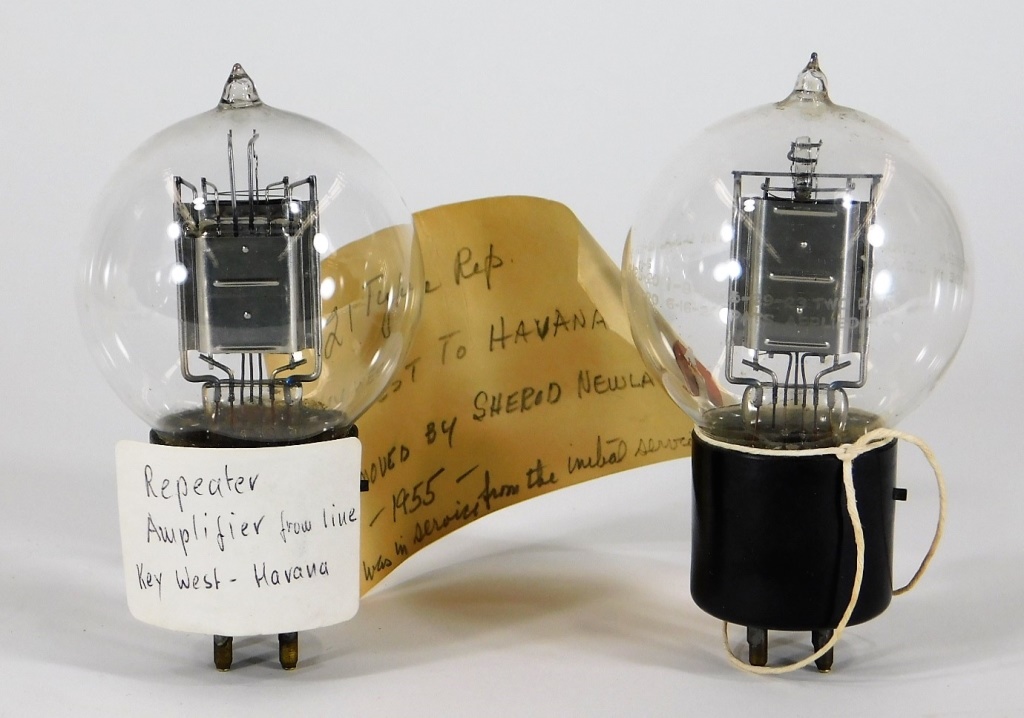 Repeater
Amplifier from line
Key West - Havana
21 Type Rep.
TO HAVANA
BY SHEROD
- 1955 -
was in service from the initial